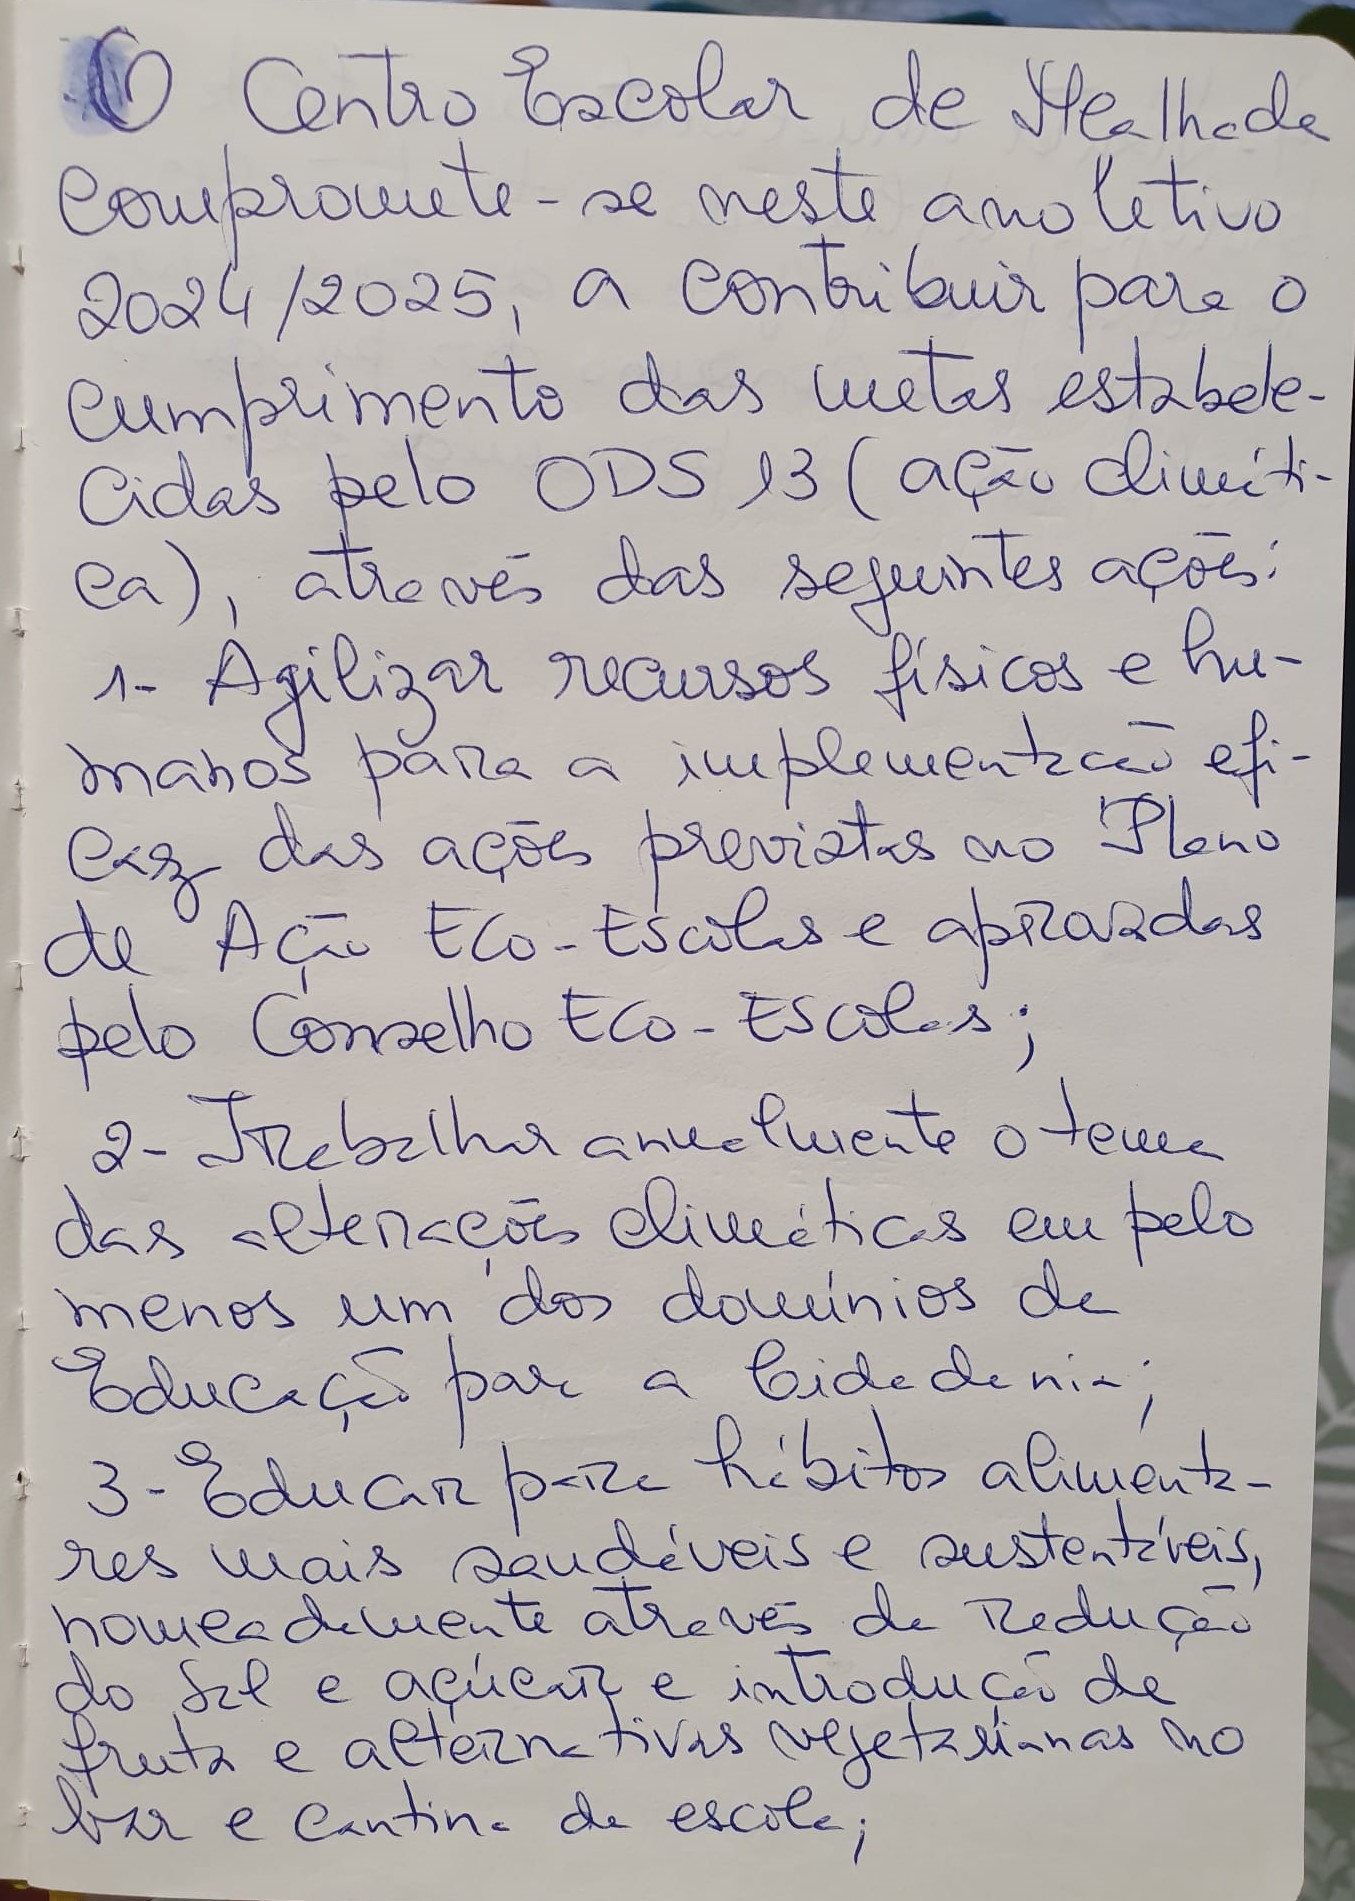 O Centro Escolar de Mealhada
compromete-se neste ano letivo
2024/2025, a contribuir para o
cumprimento das metas estabele-
cidas pelo ODS 13 (ação climáti-
ca), através das seguintes ações:
1- Agilizar recursos físicos e hu-
manos para a implementação efi-
caz das ações previstas no Plano
de Ação Eco-Escolas e aprovadas
pelo Conselho Eco-Escolas;
2- Trabalhar anualmente o tema
das alterações climáticas em pelo
menos um dos domínios da
Educação para a Cidadania;
3- Educar para hábitos alimenta-
res mais saudáveis e sustentáveis,
nomeadamente através da redução
do sal e açúcar e introdução de
fruta e alternativas vegetarianas no
bar e cantina da escola;